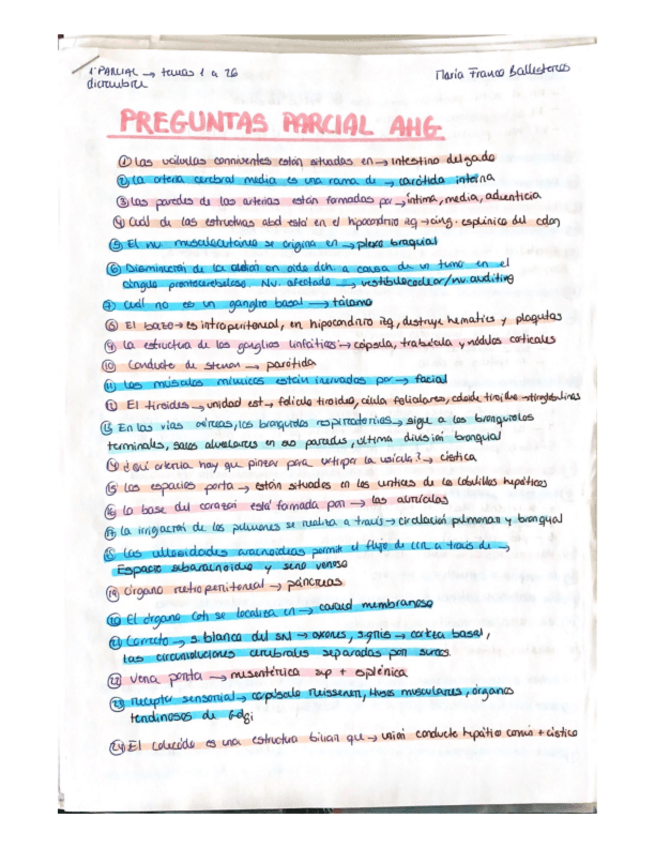 1º PARCIAL → temas 1 a 26
diciembre
María Franco Ballesteros
PREGUNTAS PARCIAL AHG
① Las válvulas conniventes están situadas en → intestino delgado
② La arteria cerebral media es una rama de → carótida interna
③ Las paredes de las arterias están formadas por → íntima, media, adventicia
④ Cuál de las estructuras abd está en el hipocondrio izq → áng. esplénico del colon
⑤ El nv. musculocutáneo se origina en → plexo braquial
⑥ Disminución de la audición en oído dch. a causa de un tumor en el
ángulo pontocerebeloso. Nv. afectado → vestibulococlear/nv. auditivo
⑦ Cuál no es un ganglio basal → tálamo
⑧ El bazo → es intraperitoneal, en hipocondrio izq, destruye hematíes y plaquetas
⑨ La estructura de los ganglios linfáticos → cápsula, trabécula y nódulos corticales
⑩ Conducto de stenon → parótida
⑪ Los músculos mímicos están inervados por → facial
⑫ El tiroides → unidad est → folículo tiroideo, célula foliculares, coloide tiroideo
⑬ En las vías aéreas, los bronquiolos respiratorios → sigue a los bronquiolos
terminales, sacos alveolares en sus paredes, última división bronquial
⑭ ¿Qué arteria hay que pinzar para extirpar la vesícula? → cística
⑮ Los espacios porta → están situados en los vértices de los lobulillos hepáticos
⑯ La base del corazón está formada por → las aurículas
⑰ La irrigación de los pulmones se realiza a través → circulación pulmonar y bronquial
⑱ Las vellosidades aracnoideas permite el flujo de LCR a través de →
Espacio subaracnoideo y seno venoso
⑲ Órgano retroperitoneal → páncreas
⑳ El órgano Corti se localiza en → caracol membranoso
㉑ Correcto → s. blanca del SN → axones, s. gris → corteza basal,
las circunvoluciones cerebrales separadas por surcos.
㉒ Vena porta → mesentérica sup + esplénica
㉓ receptor sensorial → corpúsculo Meissener, Husos musculares, órganos
tendinosos de Golgi
㉔ El colédoco es una estructura biliar que → unión conducto hepático común + cístico